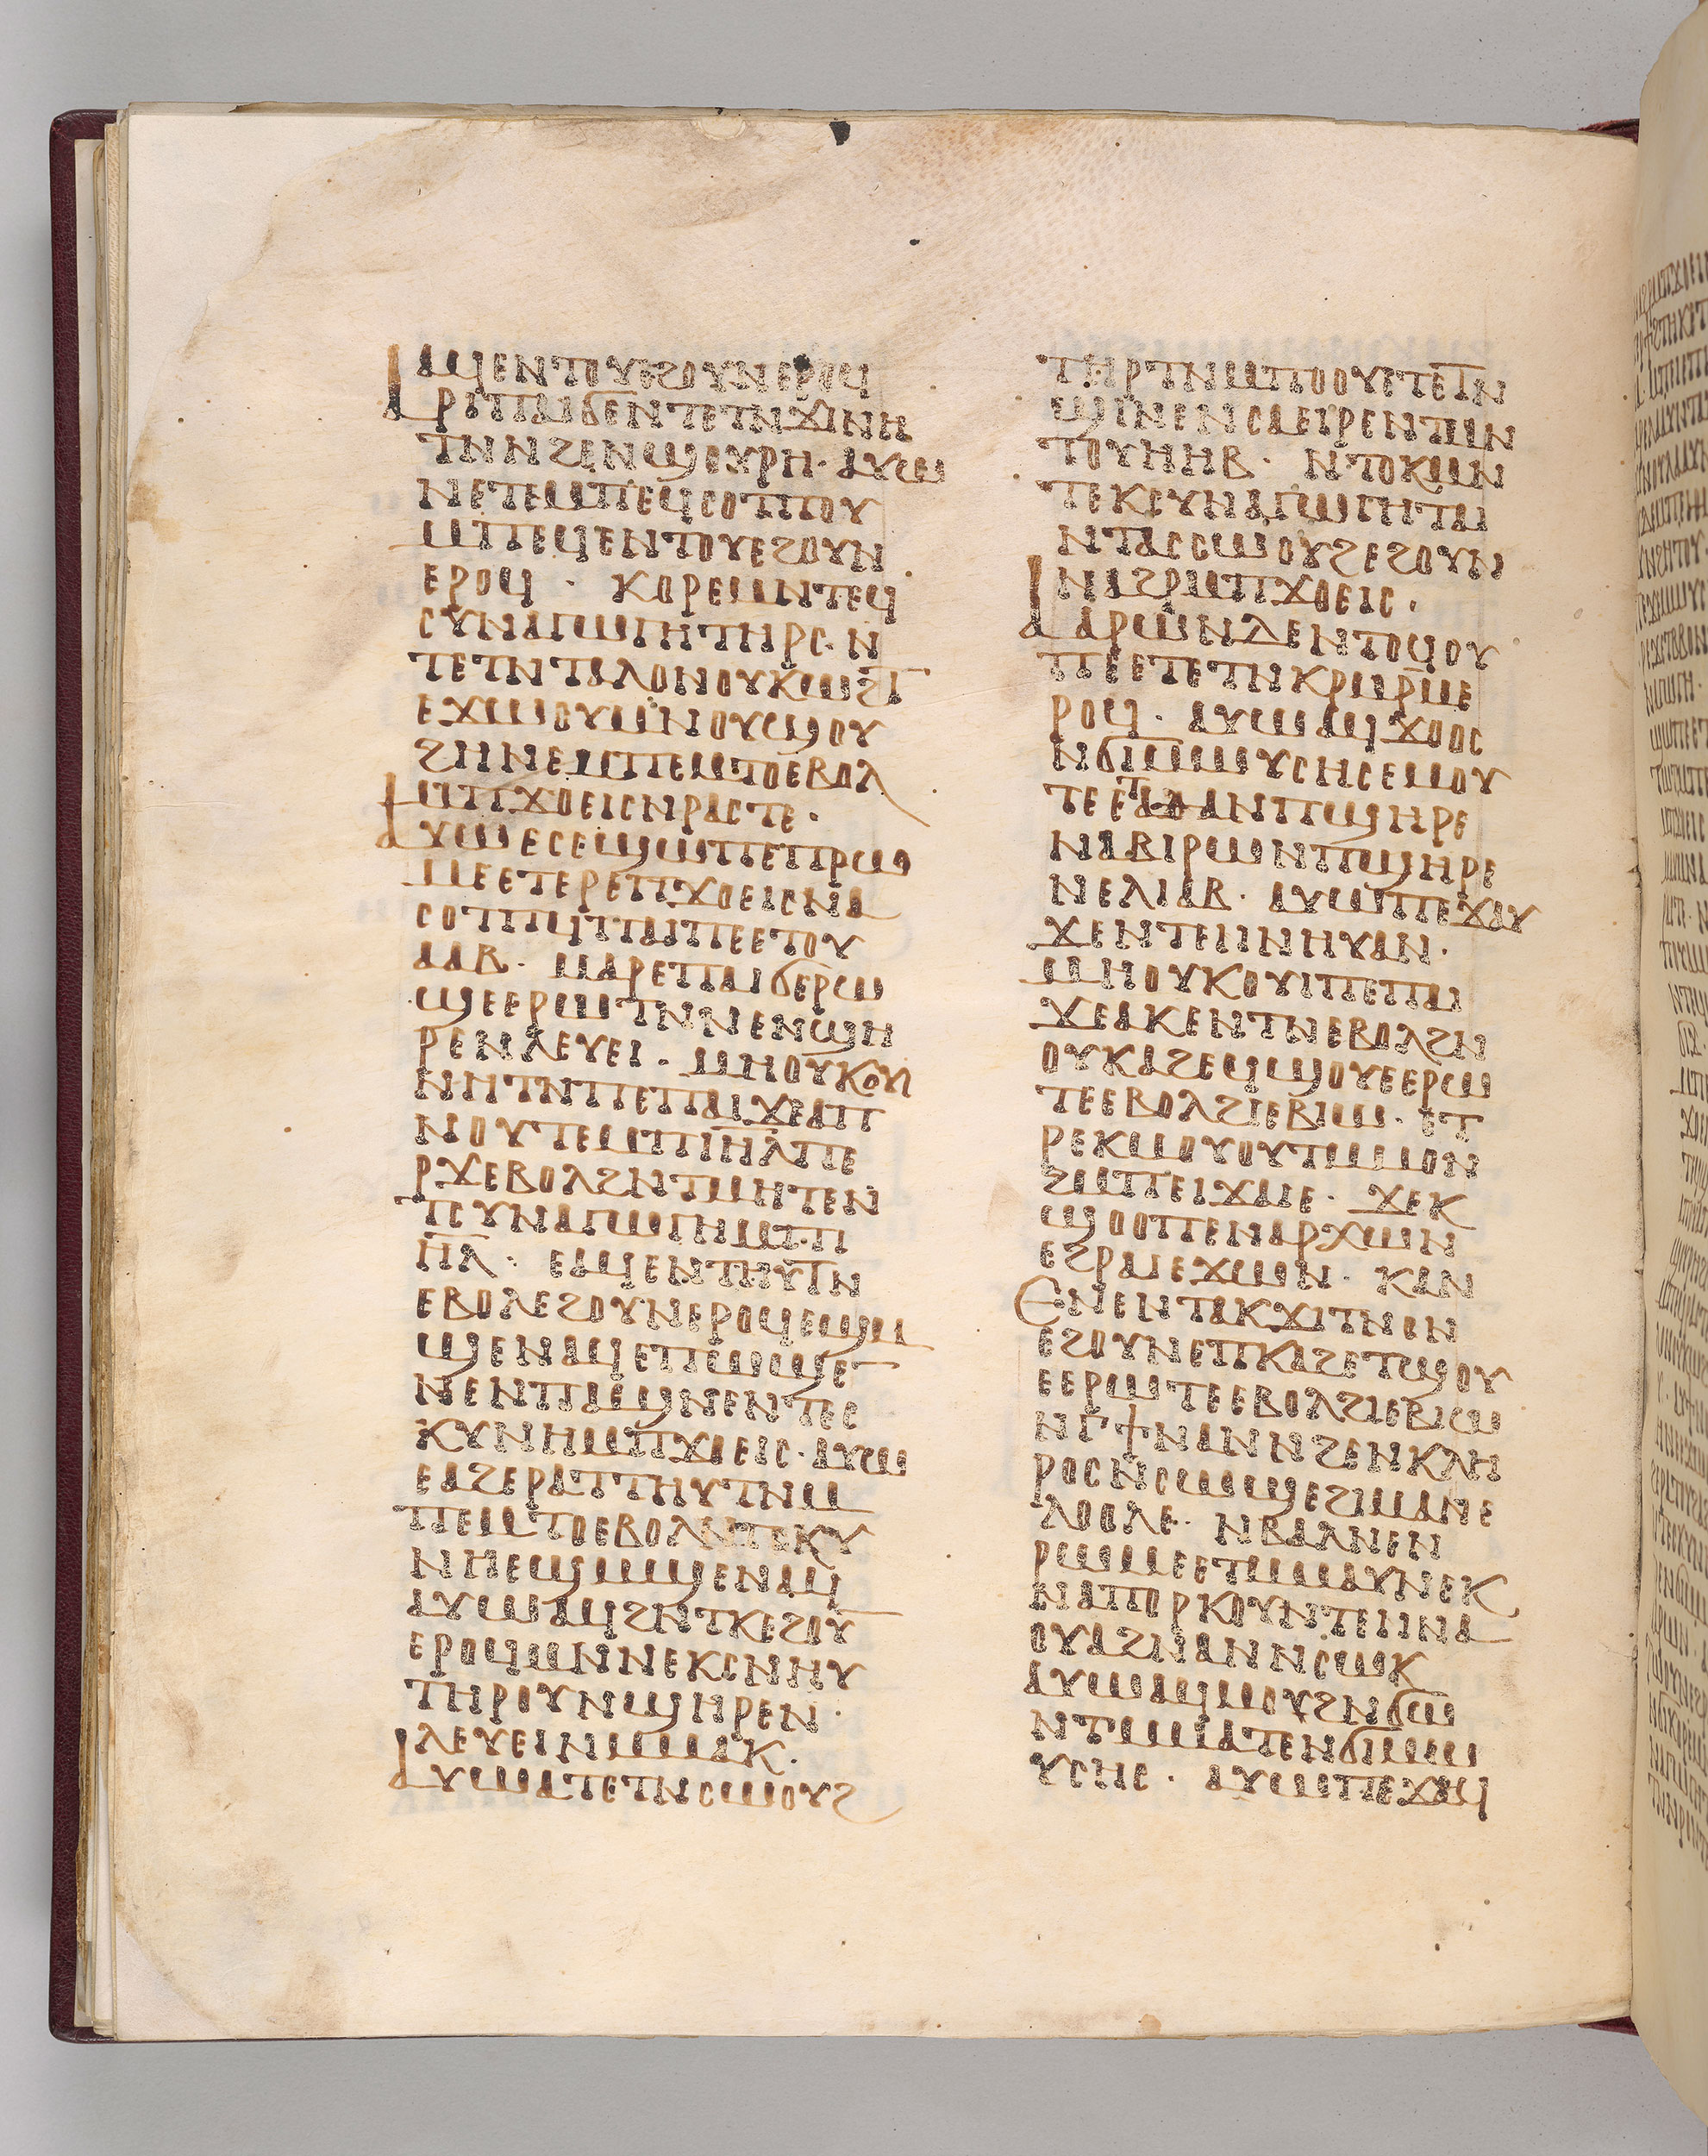 ⲁϥⲉⲛⲧⲟⲩⲉϩⲟⲩⲛⲉⲣⲟϥ
ⲣⲓⲡⲁⲓϭⲉⲛⲧⲉⲧⲛϫⲓⲛⲏ
ⲧⲛⲛϩⲉⲛϣⲟⲩⲣⲏ· ⲁⲩⲱ
ⲛⲉⲧⲉⲙⲡⲉϥⲥⲟⲧⲡⲟⲩ
ⲙⲡⲉϥⲉⲛⲧⲟⲩⲉϩⲟⲩⲛ
ⲉⲣⲟϥ · ⲕⲟⲣⲉⲙⲛⲧⲉϥ
ⲥⲩⲛⲁⲅⲱⲅⲏⲧⲏⲣⲥ·ⲛ
ⲧⲉⲧⲛⲧⲁⲗⲟⲛⲟⲩⲕⲱϩⲧ
ⲉϫⲱⲟⲩⲙⲛⲟⲩϣⲟⲩ
ϩⲏⲛⲉⲙⲡⲉⲙⲧⲟⲉⲃⲟⲗ
ⲙⲡϫⲟⲉⲓⲥⲛⲣⲁⲥⲧⲉ·
ⲁⲩⲱⲉⲥⲉϣⲱⲡⲉⲡⲣⲱ
ⲙⲉⲉⲧⲉⲣⲉⲡϫⲟⲉⲓⲥⲛⲁ
ⲥⲟⲧⲡϥⲡⲁⲓⲡⲉⲉⲧⲟⲩ
ⲁⲁⲃ· ⲙⲁⲣⲉⲡⲁⲓϭⲉⲣⲱ
ϣⲉⲉⲣⲱⲧⲛⲛⲉⲛϣⲏ
ⲣⲉⲛⲗⲉⲩⲉⲓ· ⲙⲏⲟⲩⲕⲟⲩⲓ
ⲛⲏⲧⲛⲡⲉⲡⲁⲓϫⲉⲁⲡ
ⲛⲟⲩⲧⲉⲙⲡⲓⲏ̅ⲗ̅ⲡⲉ
ⲣϫⲉⲃⲟⲗϩⲛⲧⲙⲏⲧⲉⲛ
ⲧⲥⲩⲛⲁⲅⲱⲅⲏⲙⲡⲓ
ⲏ̅ⲗ̅· ⲉⲁϥⲉⲛⲧⲏⲩⲧⲛ
ⲉⲃⲟⲗⲉϩⲟⲩⲛⲉⲣⲟϥⲉϣⲙ
ϣⲉⲛⲁϥⲉⲡϣⲙϣⲉ
ⲛⲉⲛⲡⲁⲓϣⲛⲉⲛⲧⲉⲥ
ⲕⲩⲛⲏⲙⲡϫⲟⲉⲓⲥ·ⲁⲩⲱ
ⲉⲁϩⲉⲣⲁⲧⲧⲏⲩⲧⲛⲙ
ⲡⲉⲙⲧⲟⲉⲃⲟⲗⲛⲧⲉⲕⲩ
ⲛⲏⲉϣⲙϣⲉⲛⲁϥ
ⲁⲩⲱⲁϥϩⲛⲧⲕⲉϩⲟⲩ
ⲉⲣⲟϥⲙⲛⲛⲉⲕⲥⲛⲏⲩ
ⲧⲏⲣⲟⲩⲛϣⲏⲣⲉⲛ·
ⲗⲉⲩⲉⲓⲛⲙⲙⲁⲕ·
ⲁⲩⲱⲁⲧⲉⲧⲛⲥⲱⲟⲩϩ
ⲧⲏⲣⲧⲛⲙⲡⲟⲟⲩⲉⲧⲉⲧⲛ
ϣⲓⲛⲉⲛⲥⲁⲉⲓⲣⲉⲛⲧⲙⲛ
ⲧⲟⲩⲏⲏⲃ· ⲛⲧⲟⲕⲙⲛ
ⲧⲉⲕⲥⲩⲛⲁⲅⲱⲅⲏⲧⲁⲓ
ⲛⲧⲁⲥⲥⲱⲟⲩϩⲉϩⲟⲩⲛ
ⲛⲁϩⲣⲙⲡϫⲟⲉⲓⲥ·
ⲁⲁⲣⲱⲛⲇⲉⲛⲧⲟϥⲟⲩ
ⲡⲉⲉⲧⲉⲧⲛⲕⲣⲙⲣⲙⲉ
ⲣⲟϥ· ⲁⲩⲱⲁϥϫⲟⲟⲥ
ⲛϭⲓⲙⲱⲩⲥⲏⲥⲉⲙⲟⲩ
ⲧⲉⲉⲇⲁⲑⲁⲛⲡϣⲏⲣⲉ
ⲛⲁⲃⲓⲣⲱⲛⲡϣⲏⲣⲉ
ⲛⲉⲗⲓⲁⲃ· ⲁⲩⲱⲡⲉϫⲁⲩ
ϫⲉⲛⲧⲉⲓⲛⲏⲩⲁⲛ·
ⲙⲏⲟⲩⲕⲟⲩⲓⲡⲉⲡⲁⲓ
ϫⲉⲁⲕⲉⲛⲧⲛⲉⲃⲟⲗϩⲛ
ⲟⲩⲕⲁϩⲉϥϣⲟⲩⲉⲉⲣⲱ
ⲧⲉⲉⲃⲟⲗϩⲓⲉⲃⲓⲱ· ⲉⲧ
ⲣⲉⲕⲙⲟⲩⲟⲩⲧⲙⲙⲟⲛ
ϩⲙⲡⲉⲓϫⲁⲓⲉ· ϫⲉⲕ
ϣⲟⲟⲡⲉⲛⲁⲣⲭⲱⲛ
ⲉϩⲣⲁⲓⲉϫⲱⲛ· ⲕⲁⲛ
ⲉⲛⲉⲛⲧⲁⲕϫⲓⲧⲛⲟⲛ
ⲉϩⲟⲩⲛⲉⲡⲕⲁϩⲉⲧϣⲟⲩ
ⲉⲉⲣⲱⲧⲉⲉⲃⲟⲗϩⲓⲉⲃⲓⲱ
ⲛⲅϯⲛⲁⲛⲛϩⲉⲛⲕⲗⲏ
ⲣⲟⲥⲛⲥⲱϣⲉϩⲓⲙⲁⲛⲉ
ⲗⲟⲟⲗⲉ· ⲛⲃⲁⲗⲛⲉⲛ
ⲣⲱⲙⲉⲉⲧⲙⲙⲁⲩⲛⲉⲕ
ⲛⲁⲡⲟⲣⲕⲟⲩⲛⲧⲉⲓⲛⲁ
ⲟⲩⲁϩⲛⲁⲛⲛⲥⲱⲕ
ⲁⲩⲱⲁϥⲙⲟⲩϩⲛϭⲱ
ⲛⲧⲙⲙⲁⲧⲉⲛϭⲓⲙⲱ
ⲩⲥⲏⲥ· ⲁⲩⲱⲡⲉϫⲁϥ